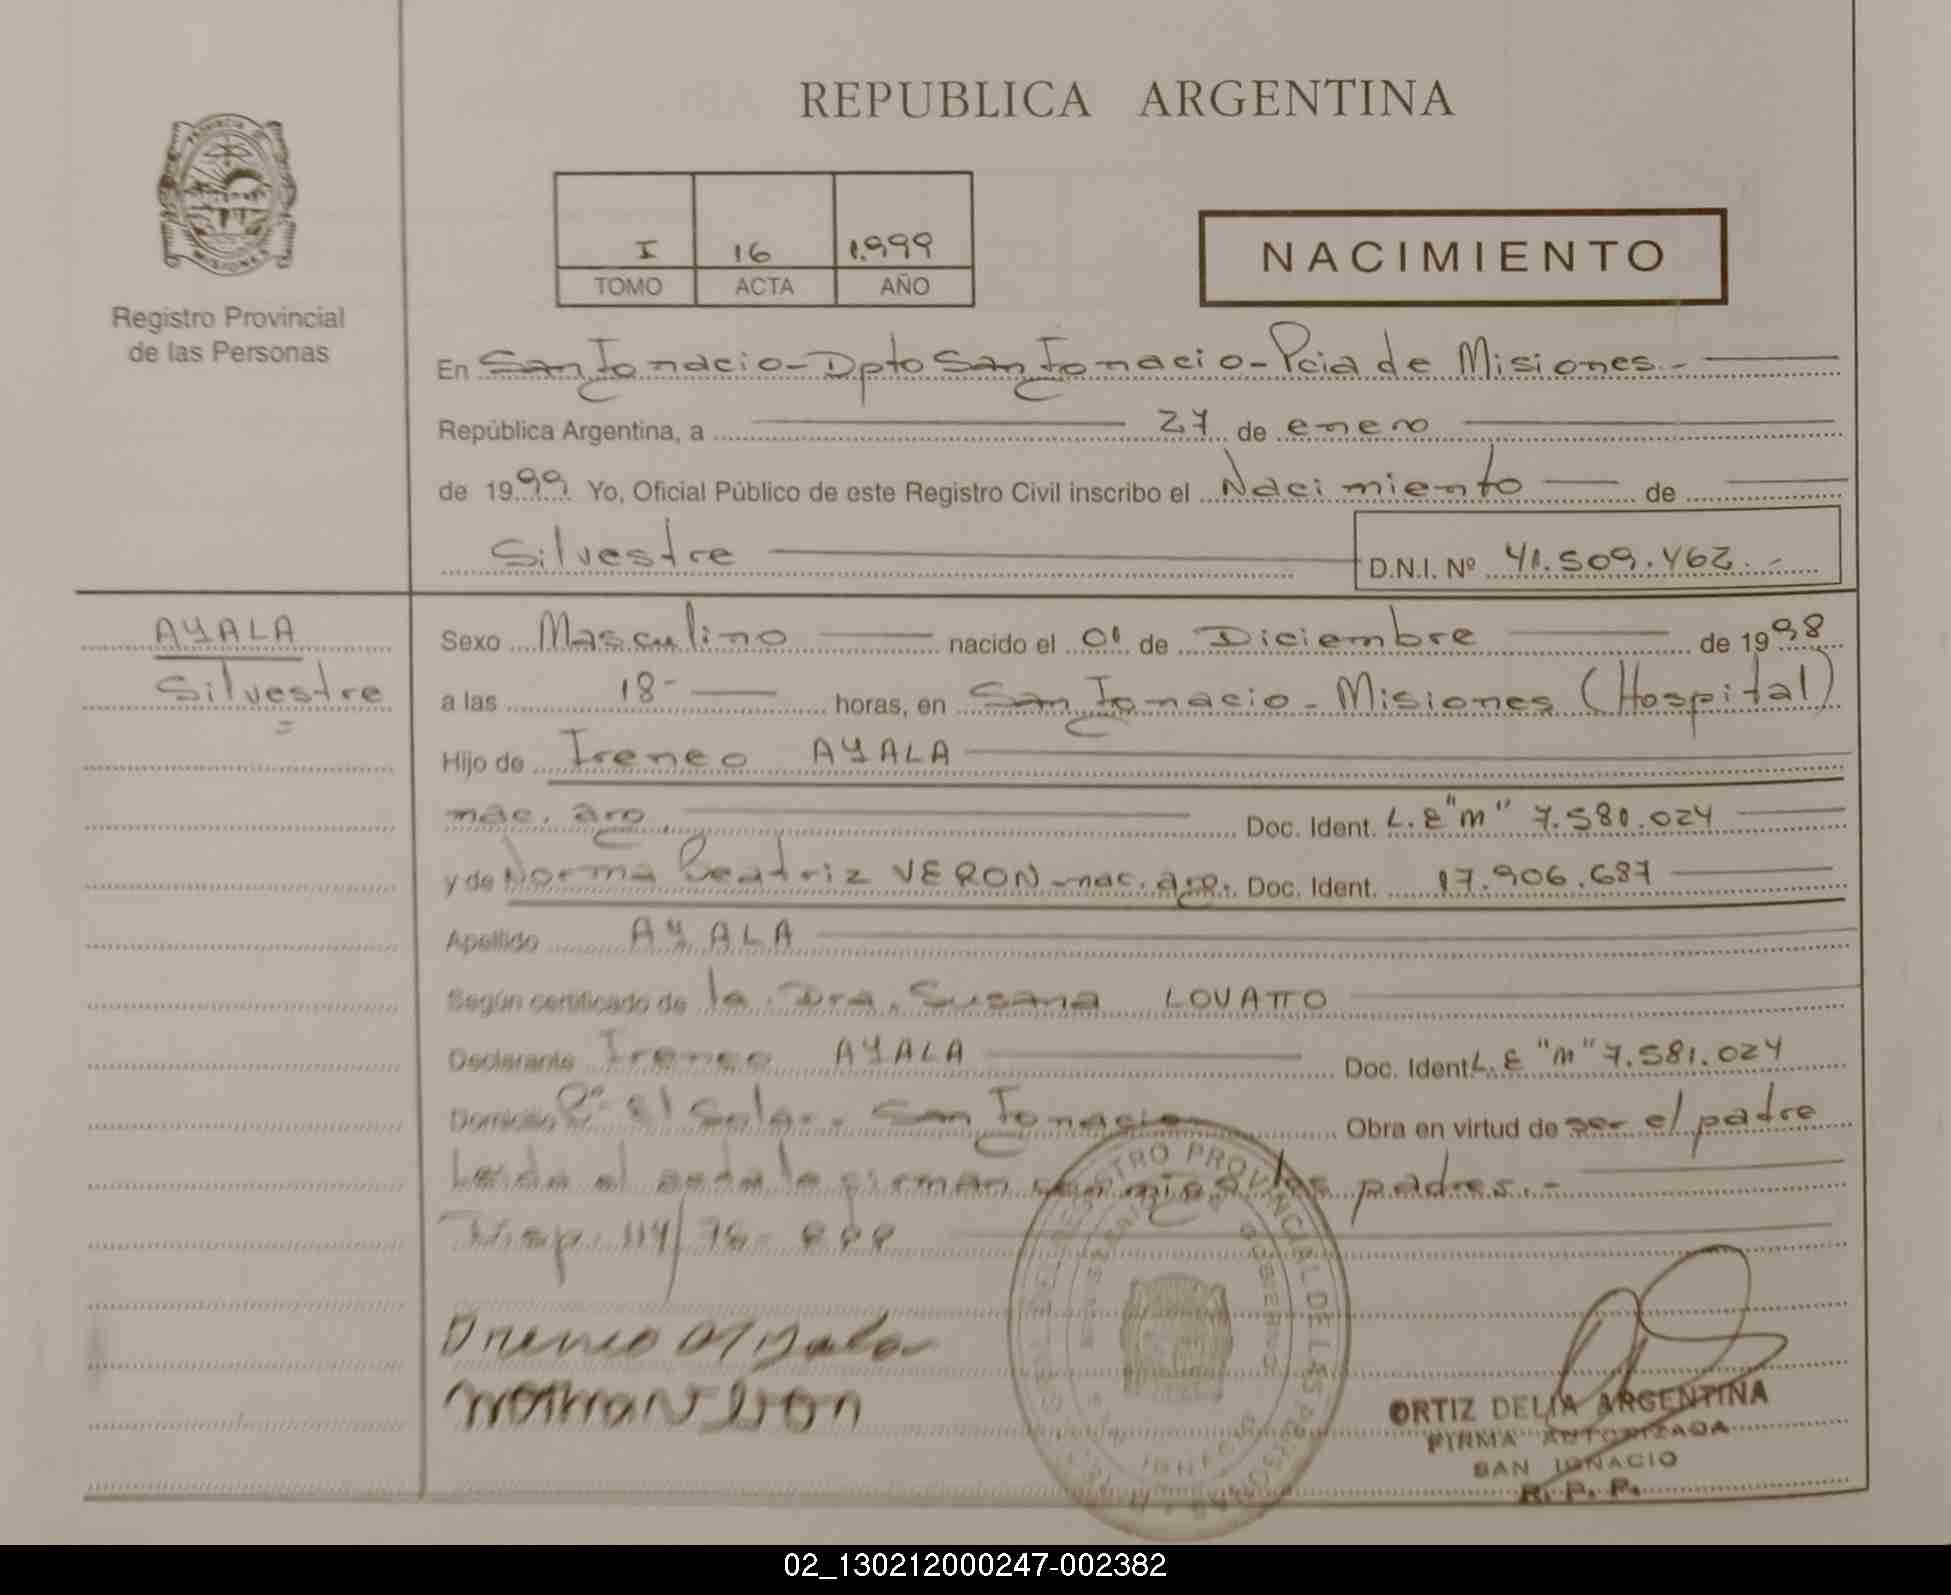 REPUBLICA ARGENTINA
PROVINCIA DE MISIONES
Registro Provincial
de las Personas
I 16 1.999
TOMO ACTA AÑO
NACIMIENTO
En San Ignacio - Dpto San Ignacio - Pcia de Misiones.-
República Argentina, a 27 de enero
de 1999 Yo, Oficial Público de este Registro Civil inscribo el Nacimiento de
Silvestre D.N.I. Nº 41.509.462.-
AYALA
Silvestre
Sexo Masculino nacido el 01 de Diciembre de 1998
a las 18- horas, en San Ignacio - Misiones (Hospital)
Hijo de Ireneo AYALA
nac. arg. Doc. Ident. L.E "M" 7.580.024
y de Norma Beatriz VERON - nac. arg. Doc. Ident. 17.906.687
Apellido AYALA
Según certificado de la Dra. Susana LOVATTO
Declarante Ireneo AYALA Doc. Ident L.E "M" 7.581.024
Domicilio Bº El Solar - San Ignacio Obra en virtud de ser el padre
Leida el acta la firman conmigo los padres.-
Disp. 114/76- RPP
Ireneo Ayala
ORTIZ DELIA ARGENTINA
FIRMA AUTORIZADA
SAN IGNACIO
R. P. P.
REGISTRO PROVINCIAL DE LAS PERSONAS
GOBIERNO
02_130212000247-002382